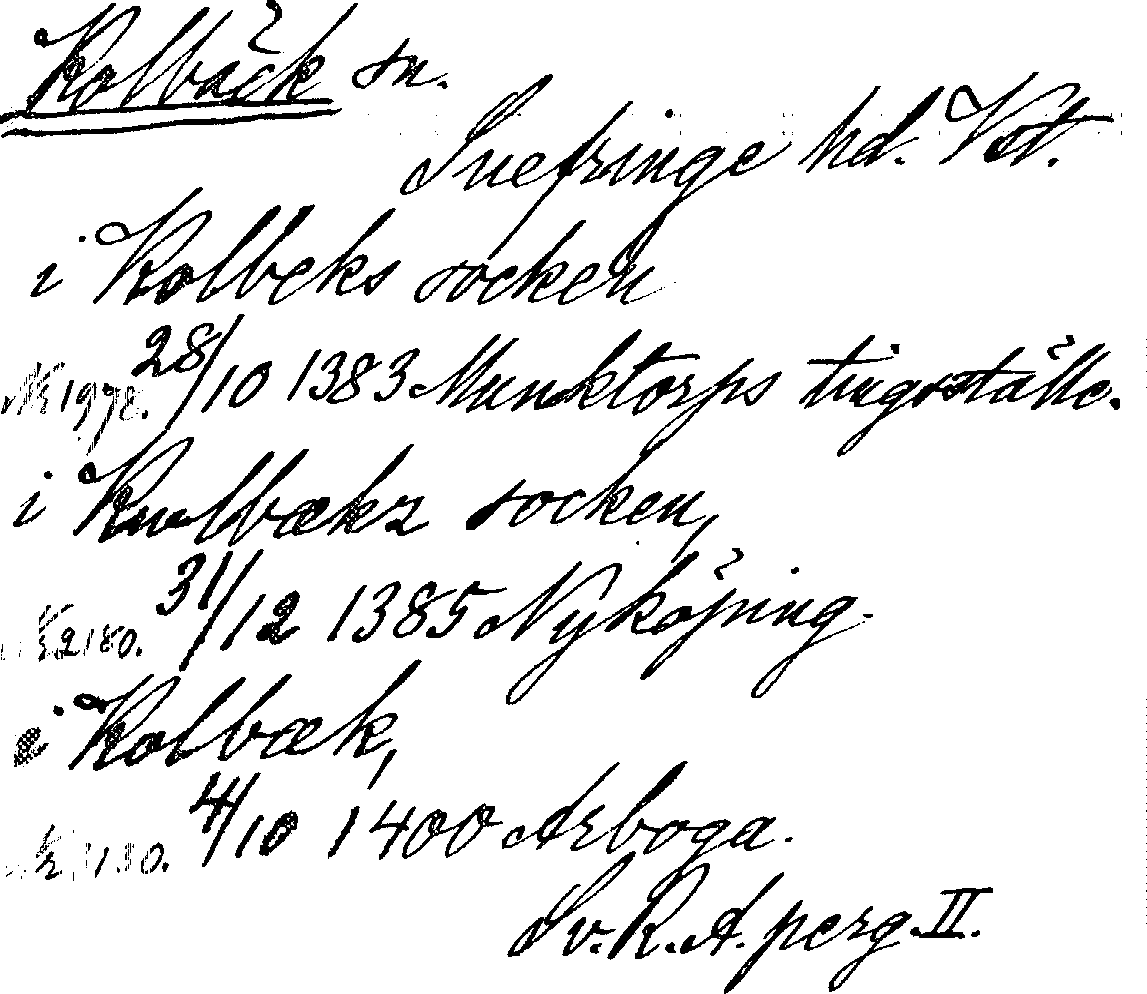 Kolbäck sn.
Snefringe hd. Vst.
i Kolbeks socken
28/10 1383 Munktorps tingställe.
i Kulbækz socken,
N 2180. 31/12 1385 Nyköping.
i Kolbæk,
4/10 1400 Arboga.
Sv. R. A. perg. II.